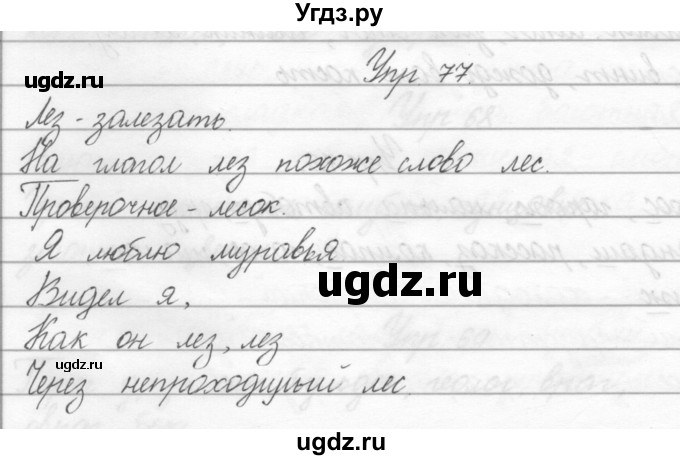 Угдз.ру
Упр 77.
Лез - залезать.
На глагол лез похоже слово лес.
Проверочное - лесок.
Я люблю муравья
Видел я,
Как он лез, лез
Через непроходимый лес
ugdz.ru
ugdz.ru
ugdz.ru
ugdz.ru
ugdz.ru